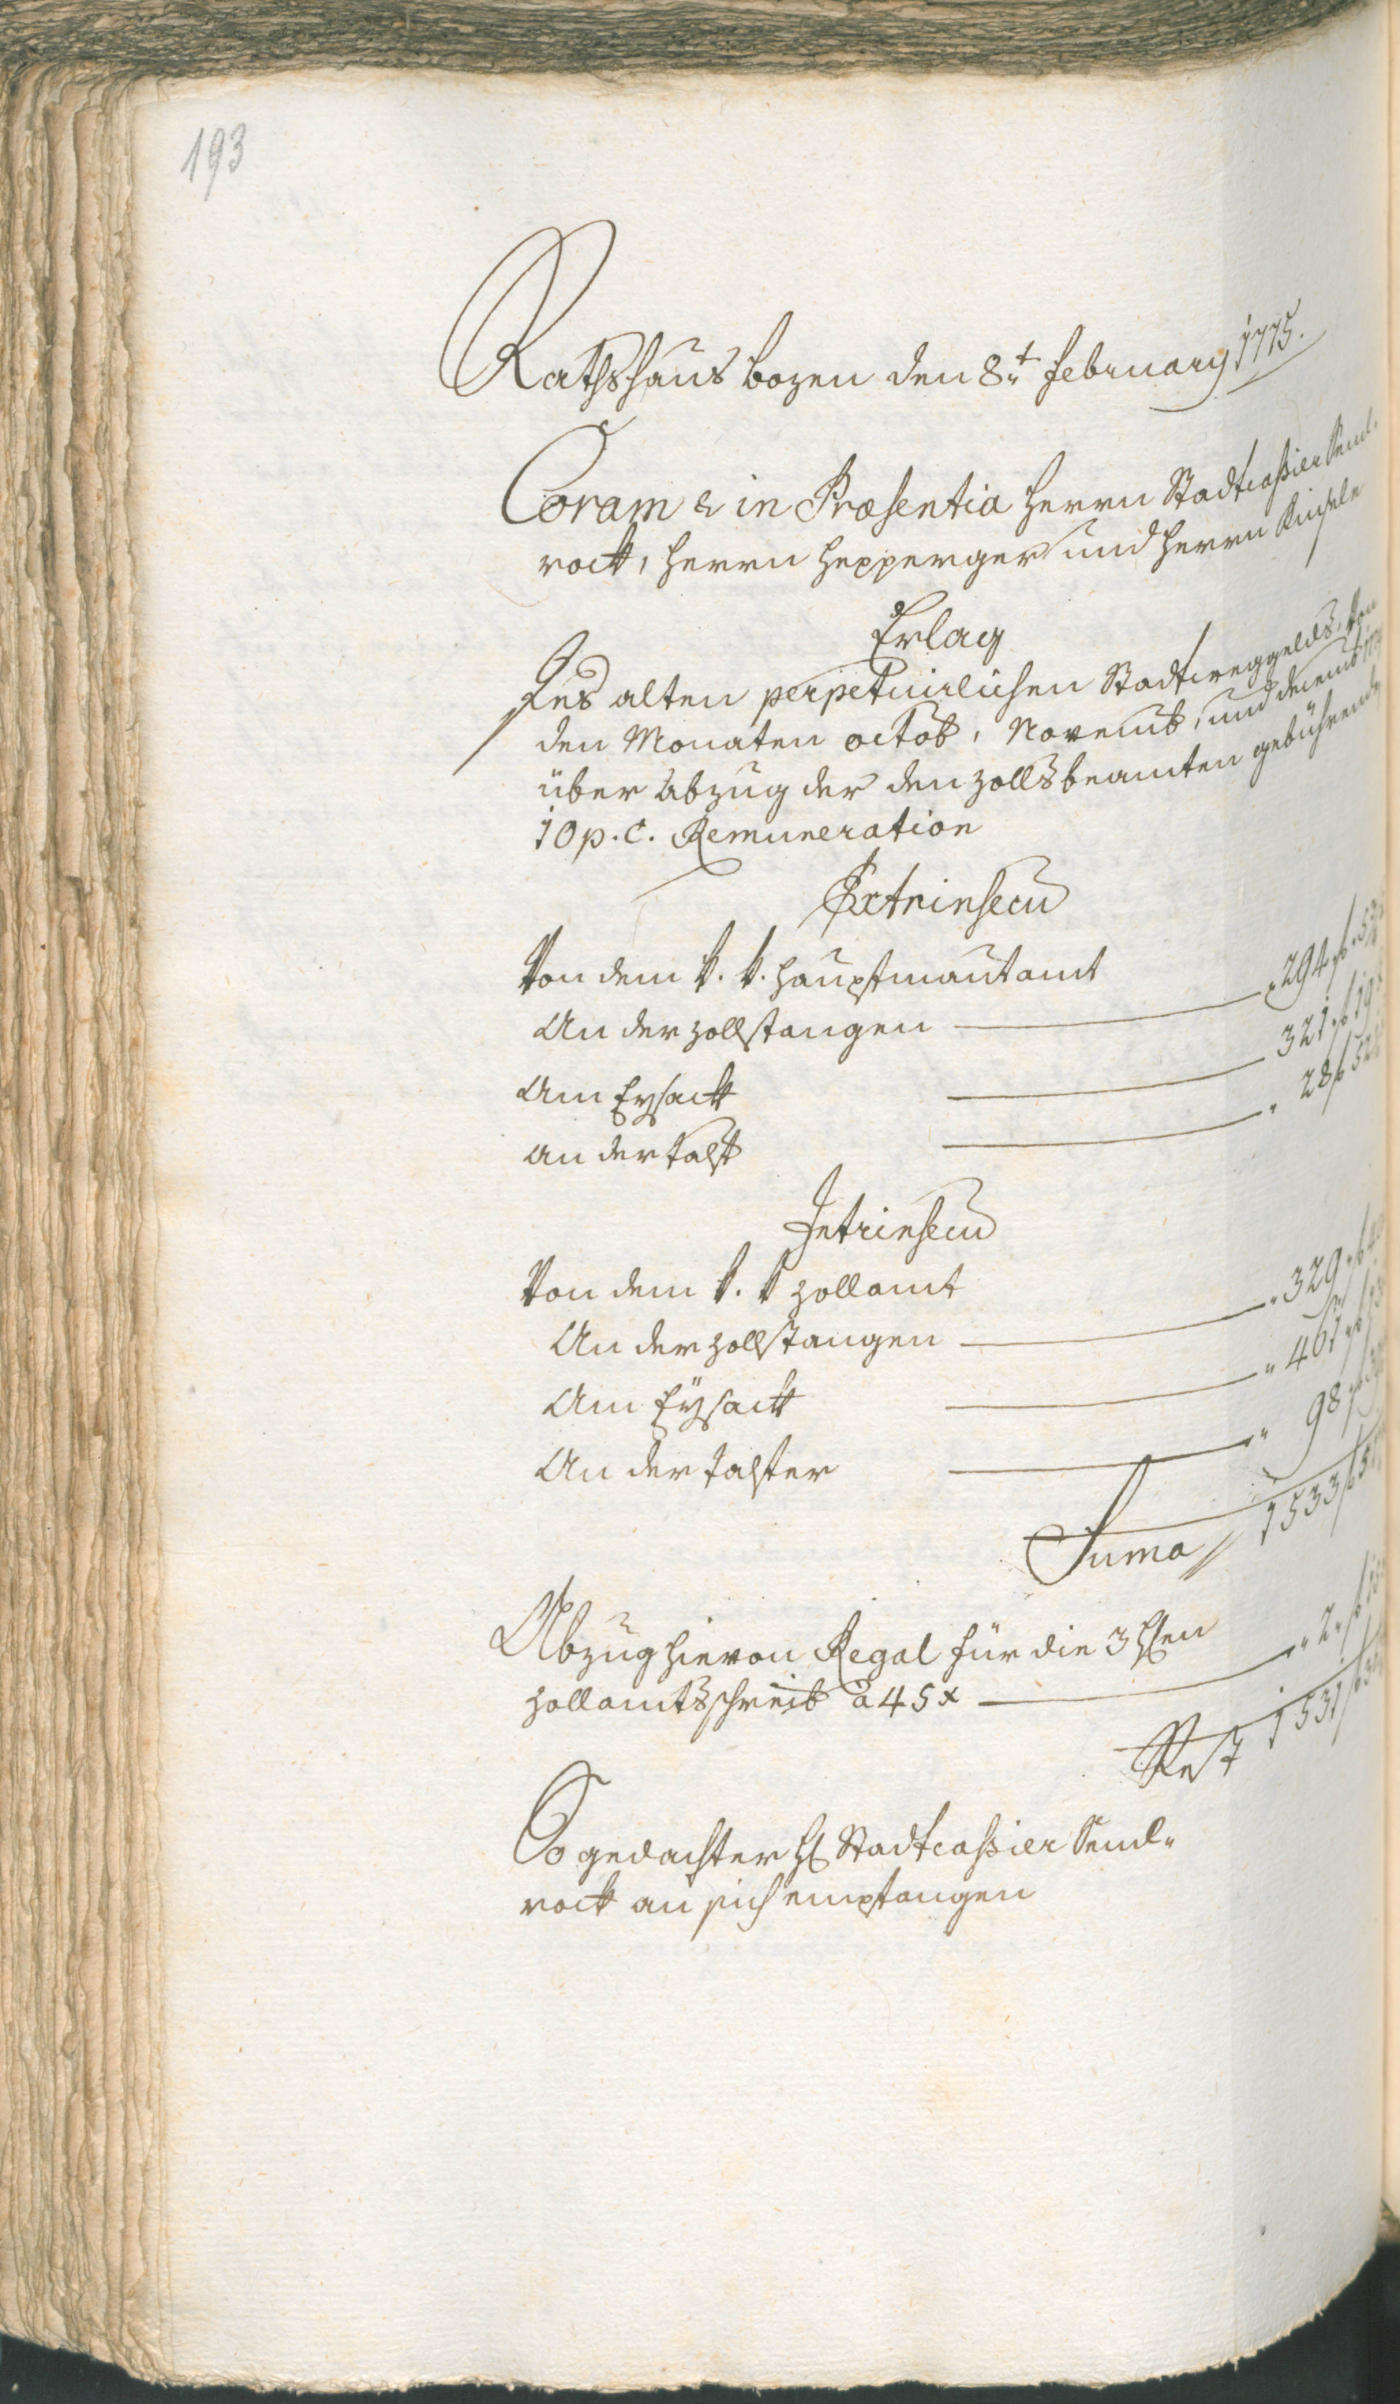 193
Rathshaus Bozen den 8t. February 1775.
Coram & in Præsentia Herrn Stadtcassier Seml-
rock, Herrn Hepperger und Herrn Kinsele
Erlag
Des alten perpetuirlichen Stadtweggelds, von
den Monaten octob, Novemb, und decemb
über Abzug der den Zollsbeamten gebührend
10 p. C. Remuneration
Extrinsecu
Von dem k. k. Hauptmautamt
An der Zollstangen 294 f 53
Am Eysack 321 f 19
An der Talf 28 f 52
Intrinsecu
Von dem k. k Zollamt
An der Zollstangen 329 f
Am Eysack 461 f
An der Talfer 98 f
Suma 1533 f 51
Abzug hievon Regal für die 3 Hen
Zollamtsschreib a 45 x 2 f 15
Rest 1531 f
So gedachter H Stadtcassier Seml-
rock an sich empfangen